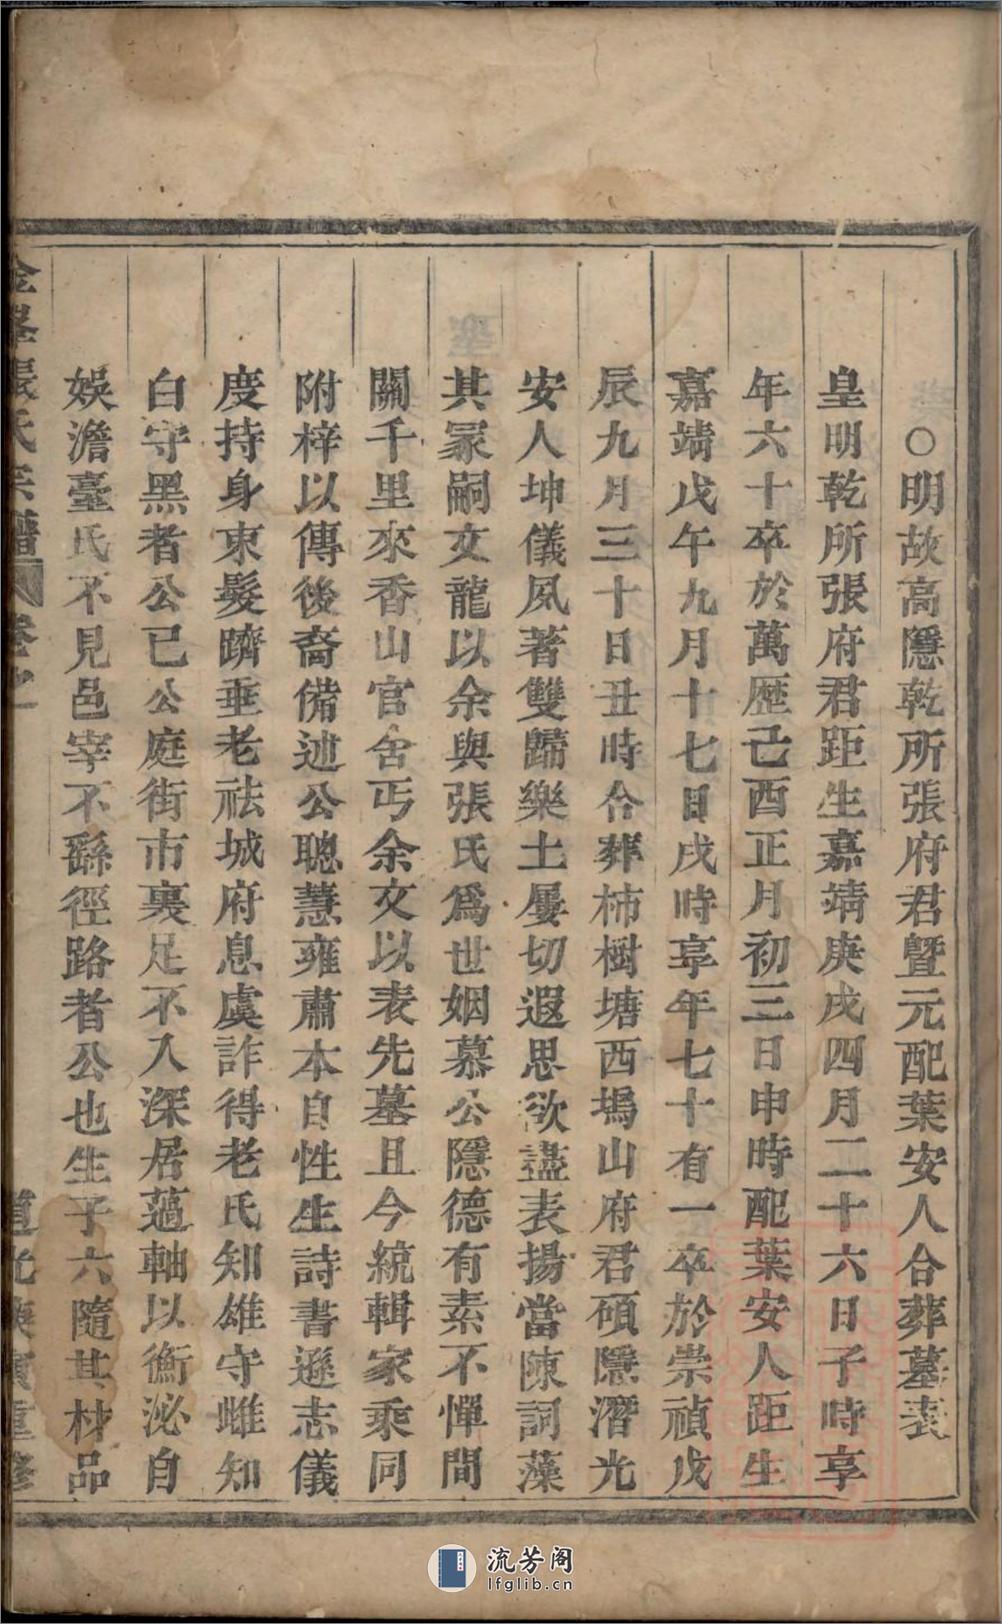 ○明故高隱乾所張府君曁元配葉安人合葬墓表
皇明乾所張府君距生嘉靖庚戌四月二十六日子時享
年六十卒於萬歷己酉正月初三日申時配葉安人距生
嘉靖戊午九月十七日戌時享年七十有一卒於崇禎戊
辰九月三十日丑時合葬柿樹塘西塢山府君碩隱潛光
安人坤儀夙著雙歸樂土屢切遐思欲盡表揚當陳詞藻
其冢嗣文龍以余與張氏爲世姻慕公隱德有素不憚間
關千里來香山官舍丐余文以表先墓且今統輯家乘同
附梓以傳後裔備述公聰慧雍肅本自性生詩書遜志儀
度持身束髮躋垂老祛城府息虞詐得老氏知雄守雌知
白守黑者公已公庭街市裹足不入深居薖軸以衡泌自
娛澹臺氏不見邑宰不繇徑路者公也生子六隨其材品
金峯張氏宗譜 卷之 道光庚寅重修
流芳阁
lfglib.cn